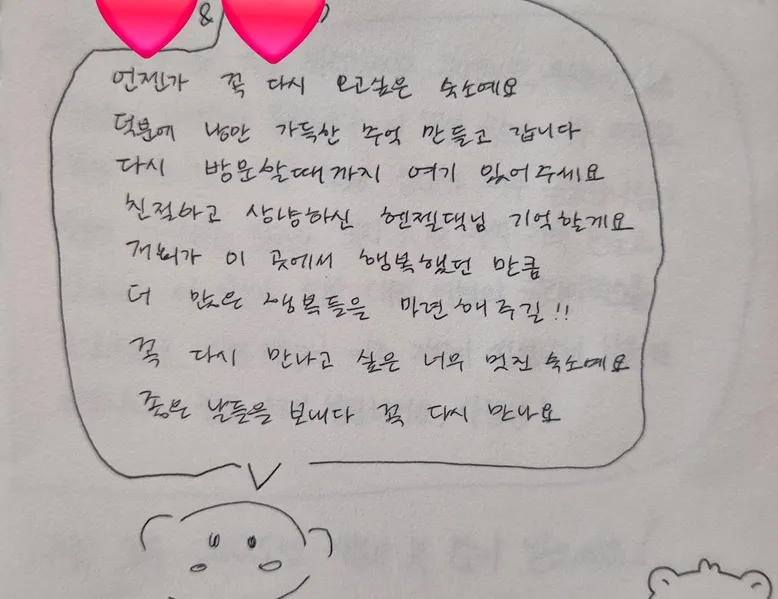 &
언젠가 꼭 다시 오고싶은 숙소예요
덕분에 낭만 가득한 추억 만들고 갑니다
다시 방문할때까지 여기 있어주세요
친절하고 상냥하신 헨젤댁님 기억할게요
저희가 이 곳에서 행복했던 만큼
더 많은 행복들을 마련해주길!!
꼭 다시 만나고 싶은 너무 멋진 숙소예요
좋은 날들을 보내다 꼭 다시 만나요